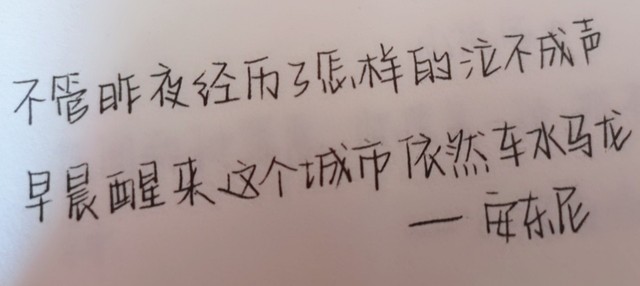 不管昨夜经历了怎样的泣不成声
早晨醒来这个城市依然车水马龙
— 安东尼